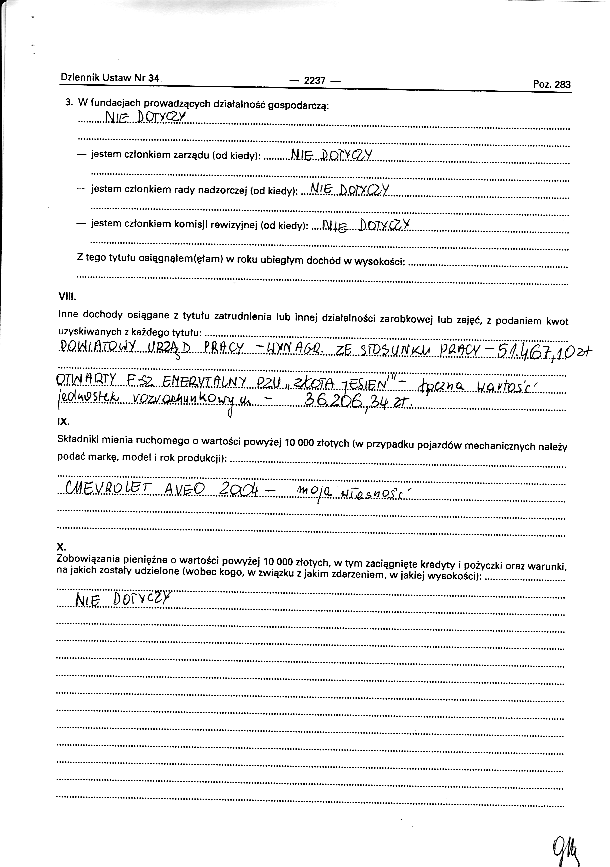 Dziennik Ustaw Nr 34 — 2237 — Poz. 283
3. W fundacjach prowadzących działalność gospodarczą:
NIE DOTYCZY
— jestem członkiem zarządu (od kiedy): NIE DOTYCZY
— jestem członkiem rady nadzorczej (od kiedy): NIE DOTYCZY
— jestem członkiem komisji rewizyjnej (od kiedy): NIE DOTYCZY
Z tego tytułu osiągnąłem(ęłam) w roku ubiegłym dochód w wysokości:
VIII.
Inne dochody osiągane z tytułu zatrudnienia lub innej działalności zarobkowej lub zajęć, z podaniem kwot
uzyskiwanych z każdego tytułu:
POWIATOWY URZĄD PRACY – WYNAGR. ZE STOSUNKU PRACY – 51.467,10 zł
OTWARTY F-SZ EMERYTALNY PZU „ZŁOTA JESIEŃ" – łączna wartość
jednostek rozrachunkowych – 36.206,34 zł.
IX.
Składniki mienia ruchomego o wartości powyżej 10 000 złotych (w przypadku pojazdów mechanicznych należy
podać markę, model i rok produkcji):
CHEVROLET AVEO 2004 – moja własność
X.
Zobowiązania pieniężne o wartości powyżej 10 000 złotych, w tym zaciągnięte kredyty i pożyczki oraz warunki,
na jakich zostały udzielone (wobec kogo, w związku z jakim zdarzeniem, w jakiej wysokości):
NIE DOTYCZY